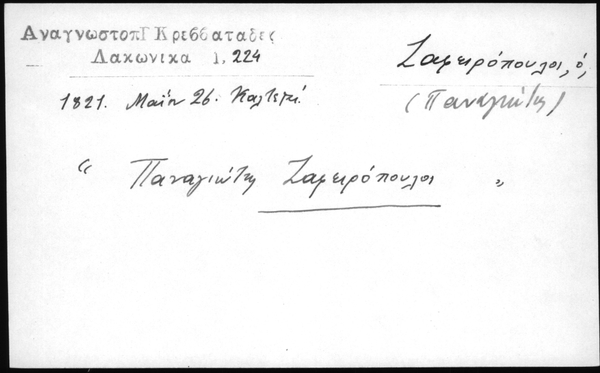 ΑναγνωστοπΓ Κρεββαταδες
Λακωνικα 1, 224
Ζαφειρόπουλος, ὁ,
(Παναγιώτης)
1821. Μαΐου 26. Καλτεζαί.
“ Παναγιώτης Ζαφειρόπουλος „